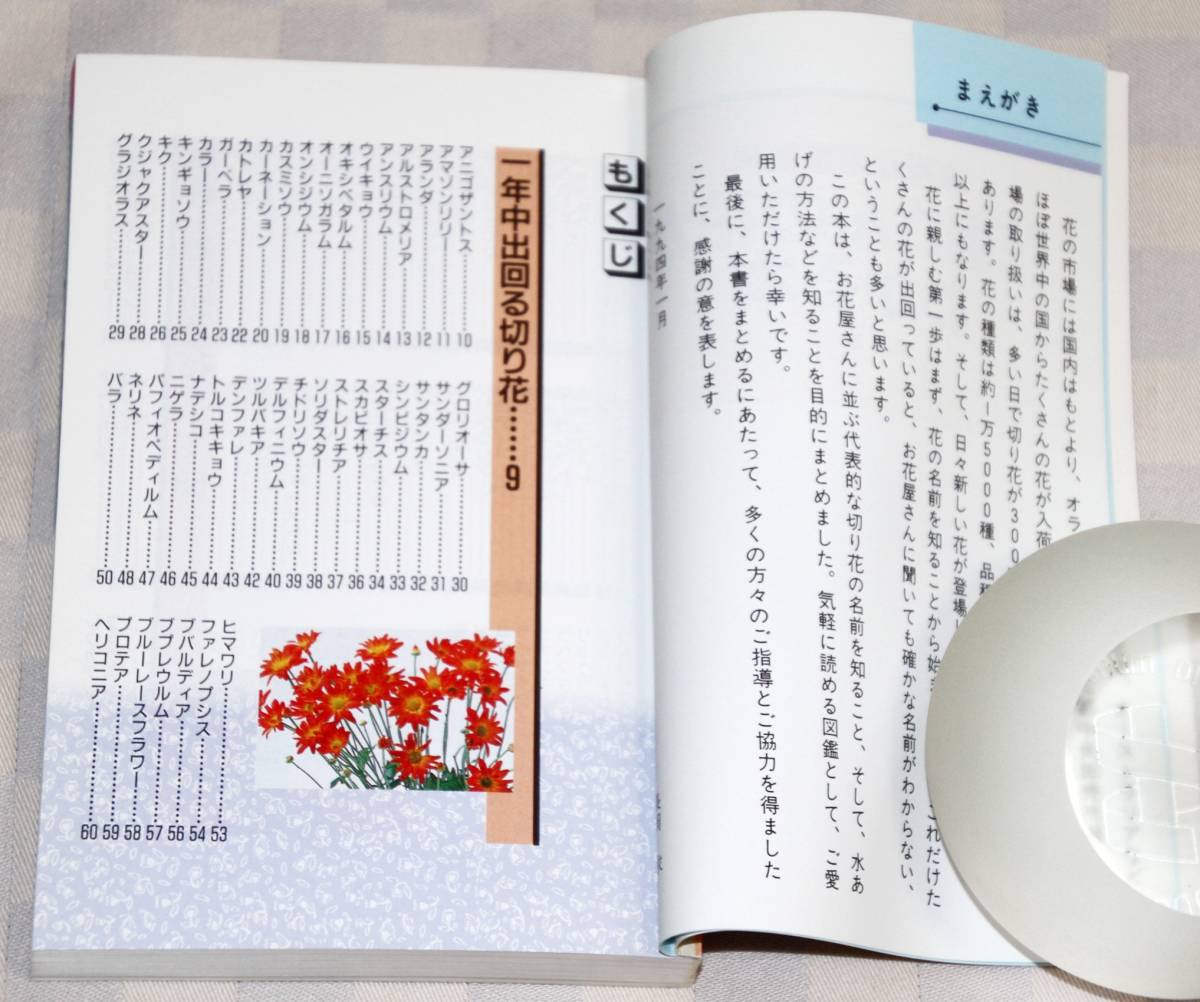 まえがき
花の市場には国内はもとより、オラ
ほぼ世界中の国からたくさんの花が入荷
場の取り扱いは、多い日で切り花が300
あります。花の種類は約一万5000種、品種
以上にもなります。そして、日々新しい花が登場し
花に親しむ第一歩はまず、花の名前を知ることから始ま
これだけた
くさんの花が出回っていると、お花屋さんに聞いても確かな名前がわからない、
ということも多いと思います。
この本は、お花屋さんに並ぶ代表的な切り花の名前を知ること、そして、水あ
げの方法などを知ることを目的にまとめました。気軽に読める図鑑として、ご愛
用いただけたら幸いです。
最後に、本書をまとめるにあたって、多くの方々のご指導とご協力を得ました
ことに、感謝の意を表します。
一九九四年一月
もくじ
一年中出回る切り花……9
アニゴザントス……10
アマゾンリリー……11
アランダ……12
アルストロメリア……13
アンスリウム……14
ウイキョウ……15
オキシペタルム……16
オーニソガラム……17
オンシジウム……18
カスミソウ……19
カーネーション……20
カトレヤ……22
ガーベラ……23
カラー……24
キンギョソウ……25
キク……26
クジャクアスター……28
グラジオラス……29
グロリオーサ……30
サンダーソニア……31
サンタンカ……32
シンビジウム……33
スターチス……34
スカビオサ……36
ストレリチア……37
ソリダスター……38
チドリソウ……39
デルフィニウム……40
ツルバキア……42
デンファレ……43
トルコキキョウ……44
ナデシコ……45
ニゲラ……46
パフィオペディルム……47
ネリネ……48
バラ……50
ヒマワリ……53
ファレノプシス……54
ブバルディア……56
ブプレウルム……57
ブルーレースフラワー……58
プロテア……59
ヘリコニア……60